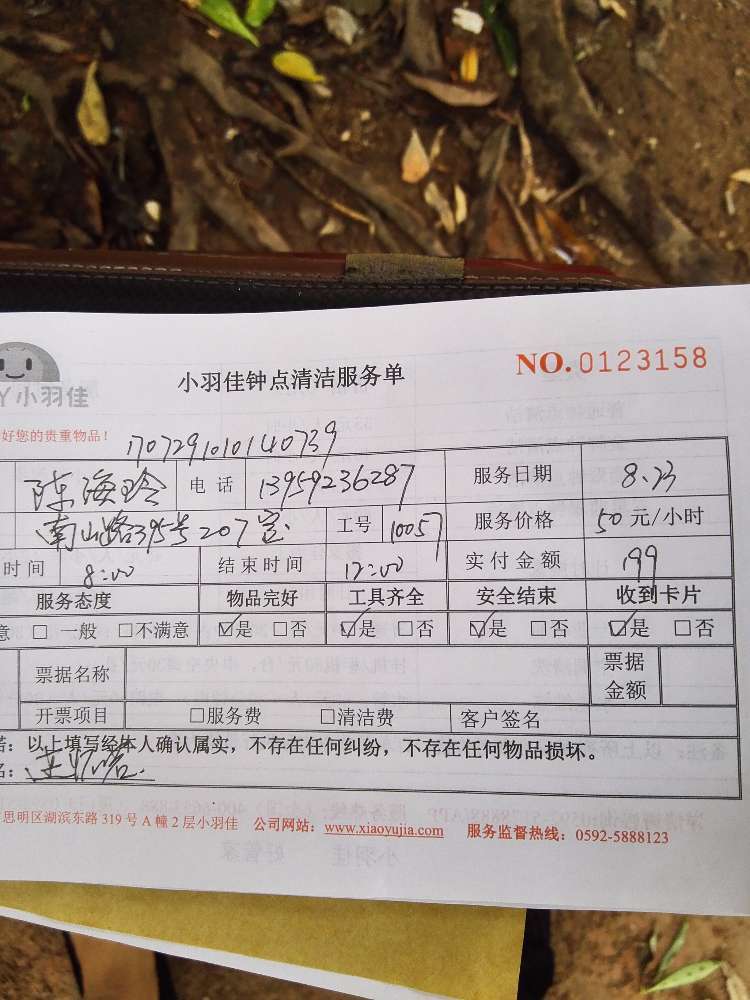 NO.0123158
小羽佳钟点清洁服务单
小羽佳
好您的贵重物品！
1707291010140739
陈海玲 电 话 13959236287 服务日期 8.23
南山路395号207室 工号 10057 服务价格 50元/小时
时间 8:00 结束时间 12:00 实付金额 199
服务态度 物品完好 工具齐全 安全结束 收到卡片
意 □ 一般 □不满意 ☑是 □否 ☑是 □否 ☑是 □否 ☑是 □否
票据名称 票据金额
开票项目 □服务费 □清洁费 客户签名
诺：以上填写经本人确认属实，不存在任何纠纷，不存在任何物品损坏。
名：
思明区湖滨东路 319 号 A 幢 2 层小羽佳 公司网站：www.xiaoyujia.com 服务监督热线：0592-5888123